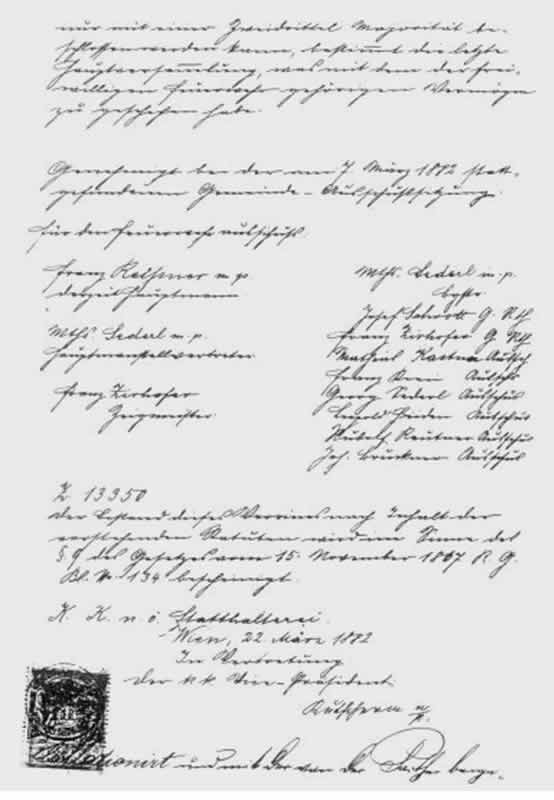 nur mit einer Zweidrittel Majorität be-
schlossen werden kann, bestimmt die letzte
Hauptversammlung, was mit dem der frei-
willigen Feuerwehr gehörigen Vermögen
zu geschehen habe.
Genehmigt bei der am 7. März 1882 statt-
gefundenen Gemeinde-Ausschußsitzung.
Für den Feuerwehrausschuß:
Franz m. p.
derzeit Hauptmann
Mths. Lederl m. p.
Hauptmannstellvertreter
Franz Zirkofer
Zeugmeister.
Mths. Lederl m. p.
Josef G. Rth
Franz Zirkofer G. Rth
Kastner Aussch
Franz Aussch
Georg Lederl Ausschuß
Leopold Ausschuß
Rudolf Ausschuß
Joh. Bruckner Ausschuß
Z. 13350
Der Bestand dieses Vereines nach Inhalt der
vorstehenden Statuten wird im Sinne des
§ 9 des Gesetzes vom 15. November 1867 R. G.
Bl. Nr. 134 bescheinigt.
K. K. n. ö. Statthalterei.
Wien, 22. März 1882
In Vertretung
Der k k Vice-Präsident
Kutschera m/p.
Collationirt und mit der von der Parthei beige-